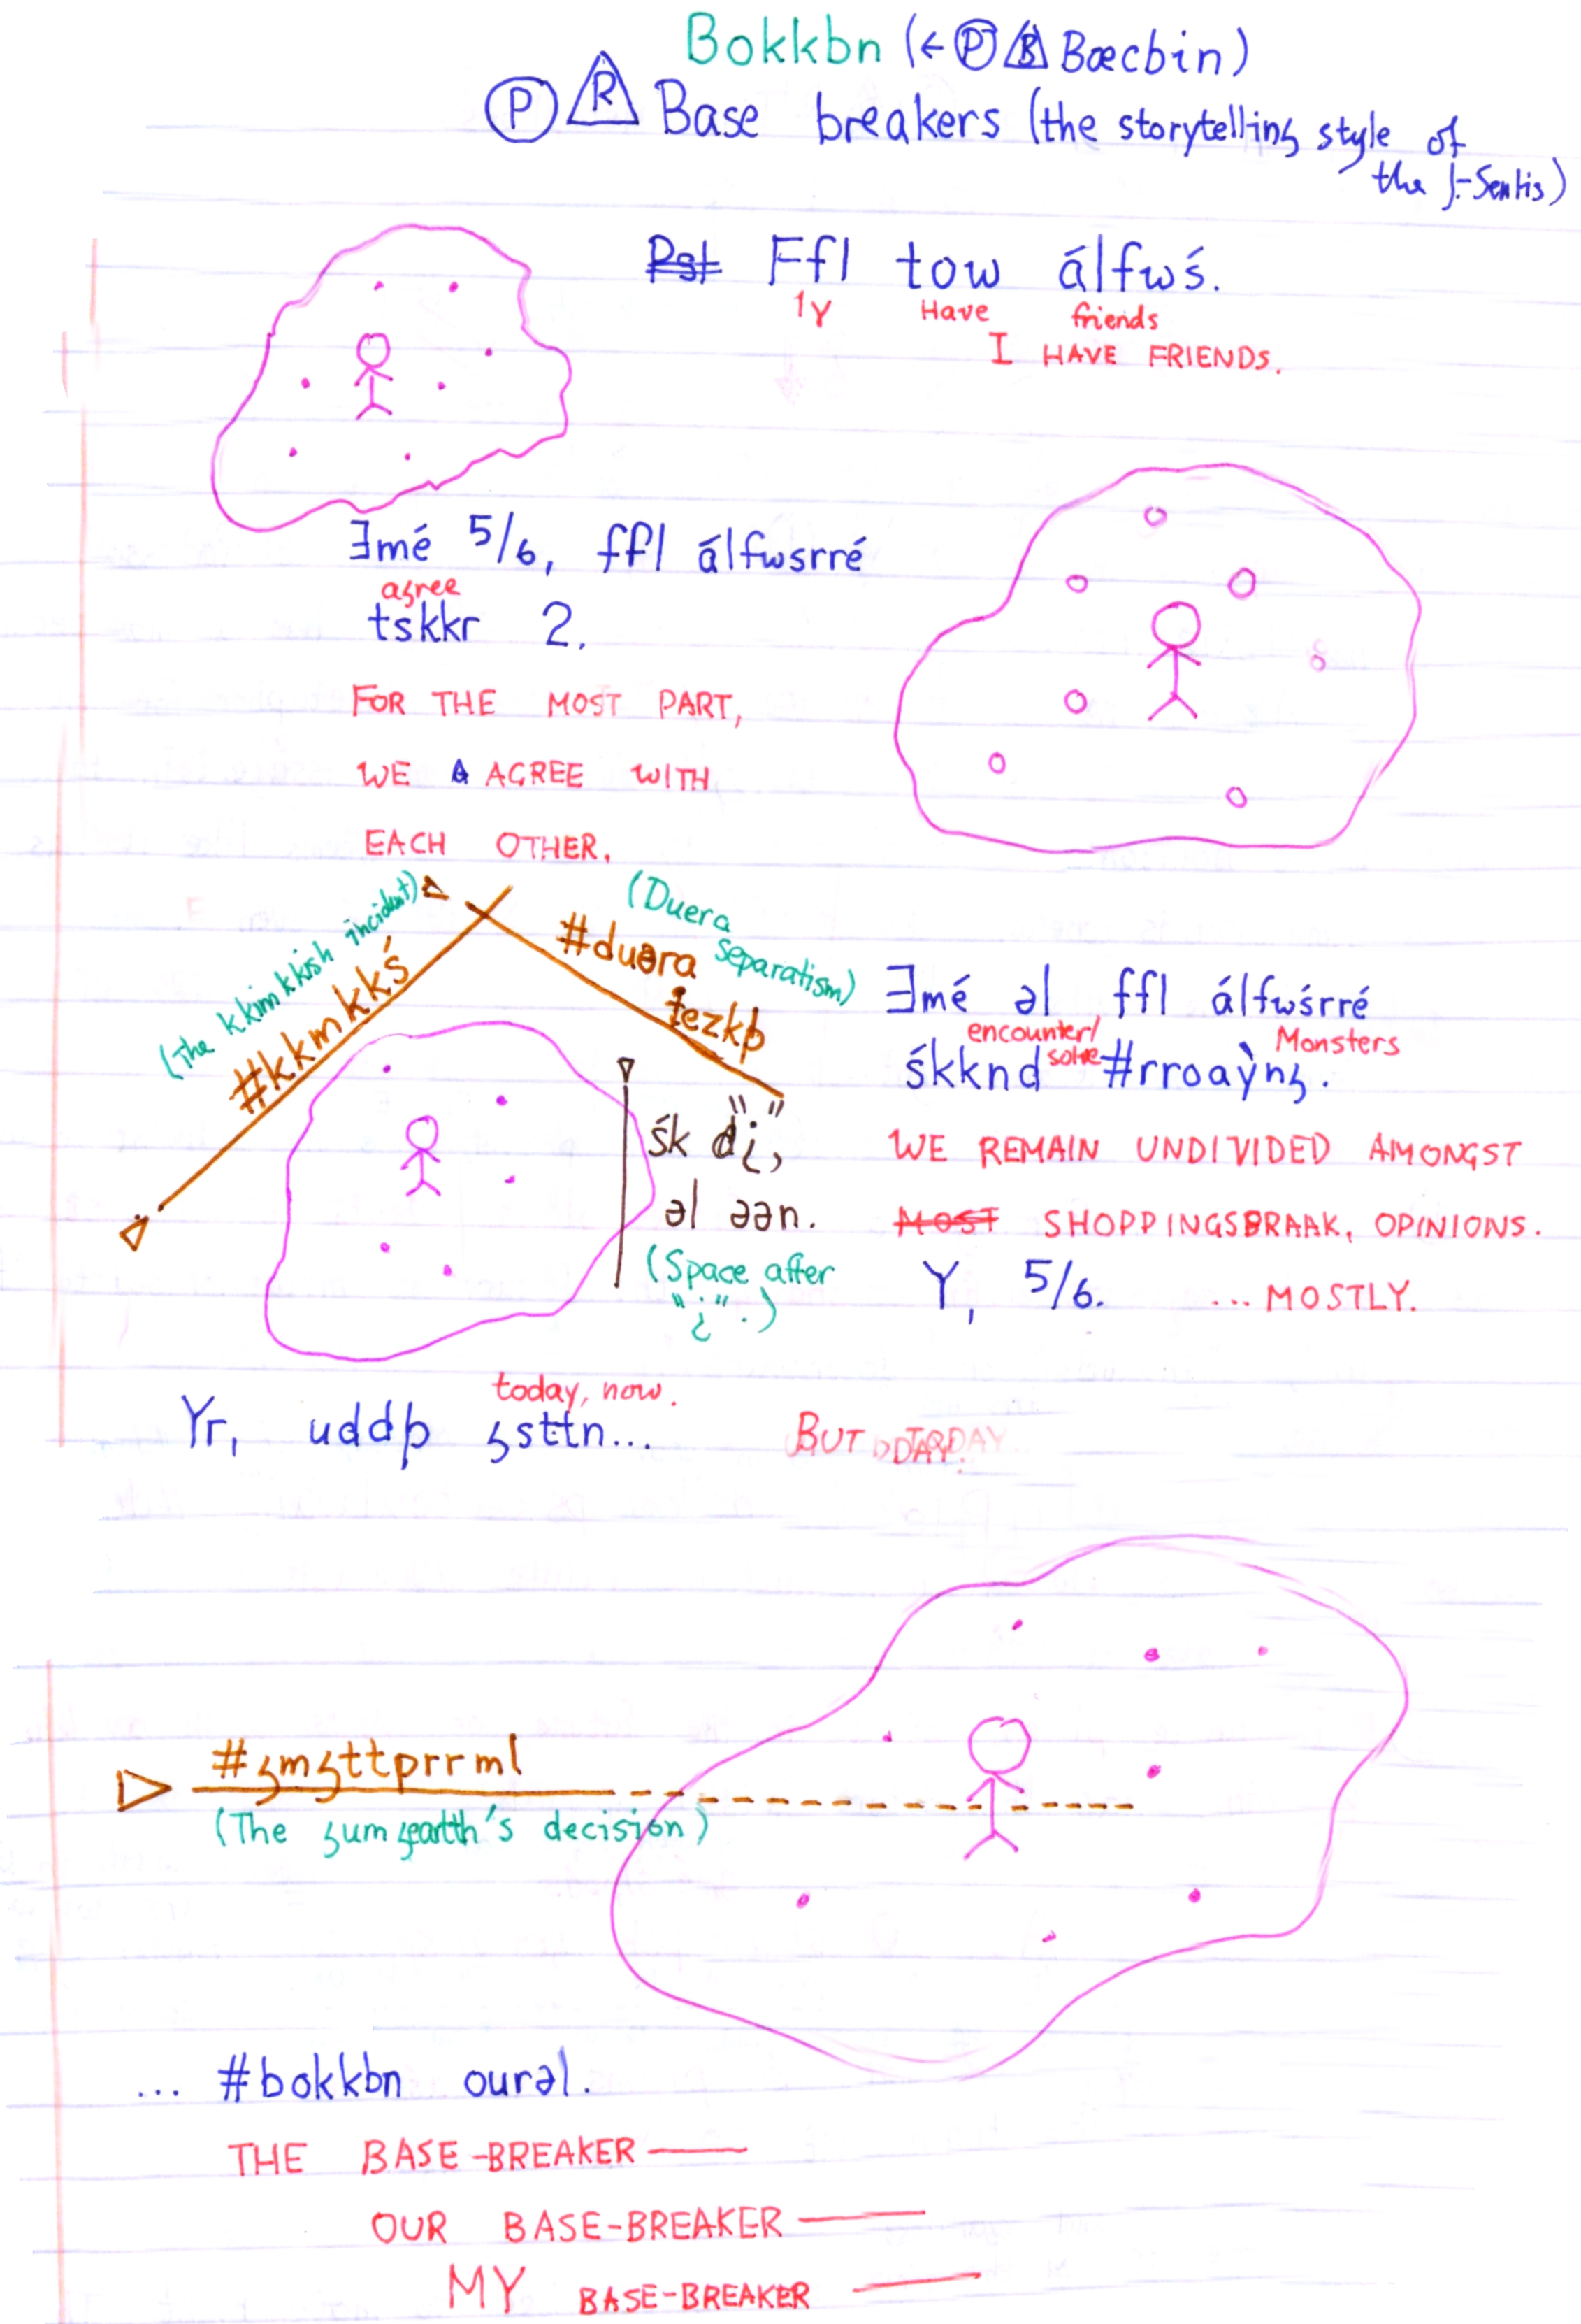 Bokkbn (← Ⓟ Bæcbin)
Ⓟ R Base breakers (the storytelling style of
the ʃ-Sentis)
Ffl tow álfwś.
1y Have friends
I HAVE FRIENDS.
Ǝmé 5/6, ffl álfwsrré
agree
tskkr 2.
FOR THE MOST PART,
WE AGREE WITH
EACH OTHER.
(The kkimkkish incident)
#kkmkkś
(Duera separatism)
#duəra
ɫezkþ
śk d"¿",
əl əən.
(Space after
"¿".)
Ǝmé əl ffl álfwśrré
encounter/ solve Monsters
śkknd #rroaẏnʒ.
WE REMAIN UNDIVIDED AMONGST
MOST SHOPPINGSBRAAK, OPINIONS.
Y, 5/6. ... MOSTLY.
today, now.
Yr, uddþ ʒsttn... BUT TODAY
#ʒmʒttprrml
(The ʒumʒeartth's decision)
... #bokkbn ourəl.
THE BASE-BREAKER —
OUR BASE-BREAKER —
MY BASE-BREAKER —